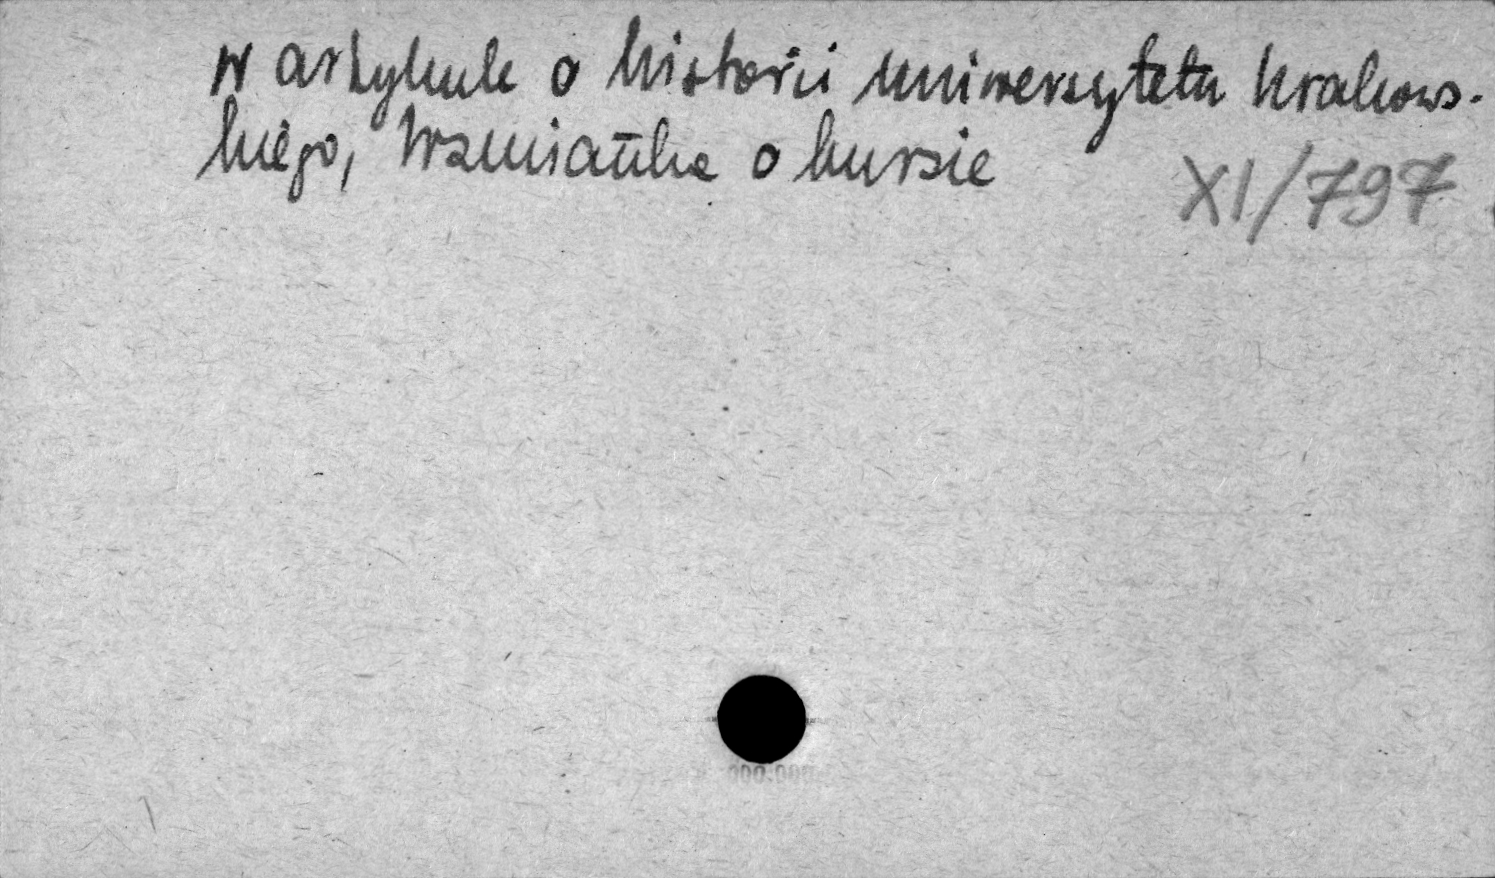 W artykule o historii uniwersytetu krakows-
kiego, wzmianka o bursie
XI/797